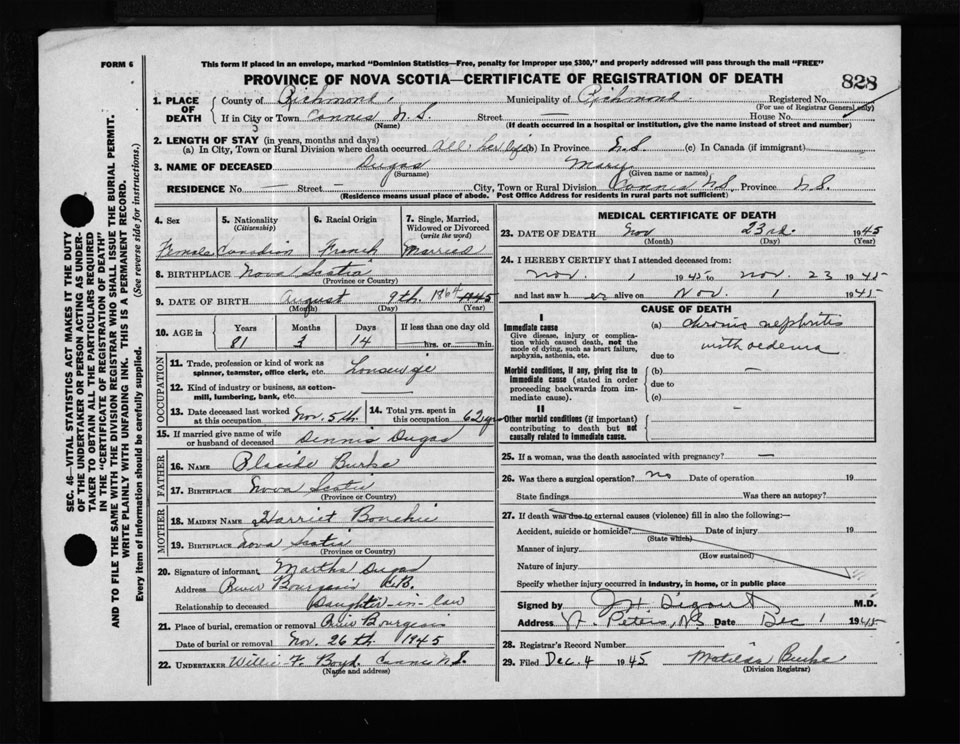 FORM 6
This form if placed in an envelope, marked "Dominion Statistics—Free, penalty for improper use $300," and properly addressed will pass through the mail "FREE"
PROVINCE OF NOVA SCOTIA—CERTIFICATE OF REGISTRATION OF DEATH
828
1. PLACE OF DEATH County of Richmond Municipality of Richmond Registered No.
(For use of Registrar General only)
If in City or Town Cannes N.S. Street — House No.
(Name) (If death occurred in a hospital or institution, give the name instead of street and number)
2. LENGTH OF STAY (in years, months and days)
(a) In City, Town or Rural Division where death occurred All her life (b) In Province N.S. (c) In Canada (if immigrant)
3. NAME OF DECEASED Dugas Mary
(Surname) (Given name or names)
RESIDENCE No — Street — City, Town or Rural Division Cannes N.S. Province N.S.
(Residence means usual place of abode. Post Office Address for residents in rural parts not sufficient)
4. Sex 5. Nationality (Citizenship) 6. Racial Origin 7. Single, Married, Widowed or Divorced (write the word)
Female Canadian French Married
8. BIRTHPLACE Nova Scotia
(Province or Country)
9. DATE OF BIRTH August 9th. 1864 1945
(Month) (Day) (Year)
10. AGE in Years Months Days If less than one day old
81 3 14 hrs. or min.
OCCUPATION
11. Trade, profession or kind of work as spinner, teamster, office clerk, etc. housewife
12. Kind of industry or business, as cotton-mill, lumbering, bank, etc. —
13. Date deceased last worked at this occupation Nov. 5th. 14. Total yrs. spent in this occupation 62 yrs
15. If married give name of wife or husband of deceased Dennis Dugas
FATHER
16. NAME Placide Burke
17. BIRTHPLACE Nova Scotia
(Province or Country)
MOTHER
18. MAIDEN NAME Harriet
19. BIRTHPLACE Nova Scotia
(Province or Country)
20. Signature of informant Martha Dugas
Address River Bourgeois C.B.
Relationship to deceased Daughter-in-law
21. Place of burial, cremation or removal River Bourgeois
Date of burial or removal Nov. 26th. 1945
22. UNDERTAKER Willie F. Boyd. Cannes N.S.
(Name and address)
MEDICAL CERTIFICATE OF DEATH
23. DATE OF DEATH Nov 23rd. 1945
(Month) (Day) (Year)
24. I HEREBY CERTIFY that I attended deceased from:
Nov. 1 1945 to Nov. 23 1945
and last saw her alive on Nov. 1 1945
CAUSE OF DEATH
I
Immediate cause
Give disease, injury or complication which caused death, not the mode of dying, such as heart failure, asphyxia, asthenia, etc.
(a) chronic nephritis
with oedema
due to
Morbid conditions, if any, giving rise to immediate cause (stated in order proceeding backwards from immediate cause).
(b) —
due to
(c)
II
Other morbid conditions (if important) contributing to death but not causally related to immediate cause.
25. If a woman, was the death associated with pregnancy? —
26. Was there a surgical operation? no Date of operation 19
State findings Was there an autopsy?
27. If death was due to external causes (violence) fill in also the following:—
Accident, suicide or homicide? Date of injury 19
(State which)
Manner of injury
(How sustained)
Nature of injury
Specify whether injury occurred in industry, in home, or in public place
Signed by M.D.
Address St. Peters, N.S. Date Dec 1 1945
28. Registrar's Record Number
29. Filed Dec. 4 1945 Matilda Burke
(Division Registrar)
SEC. 46—VITAL STATISTICS ACT MAKES IT THE DUTY
OF THE UNDERTAKER OR PERSON ACTING AS UNDER-
TAKER TO OBTAIN ALL THE PARTICULARS REQUIRED
IN THE "CERTIFICATE OF REGISTRATION OF DEATH"
AND TO FILE THE SAME WITH THE DIVISION REGISTRAR WHO SHALL ISSUE THE BURIAL PERMIT.
WRITE PLAINLY WITH UNFADING INK. THIS IS A PERMANENT RECORD.
Every item of information should be carefully supplied. (See reverse side for instructions.)